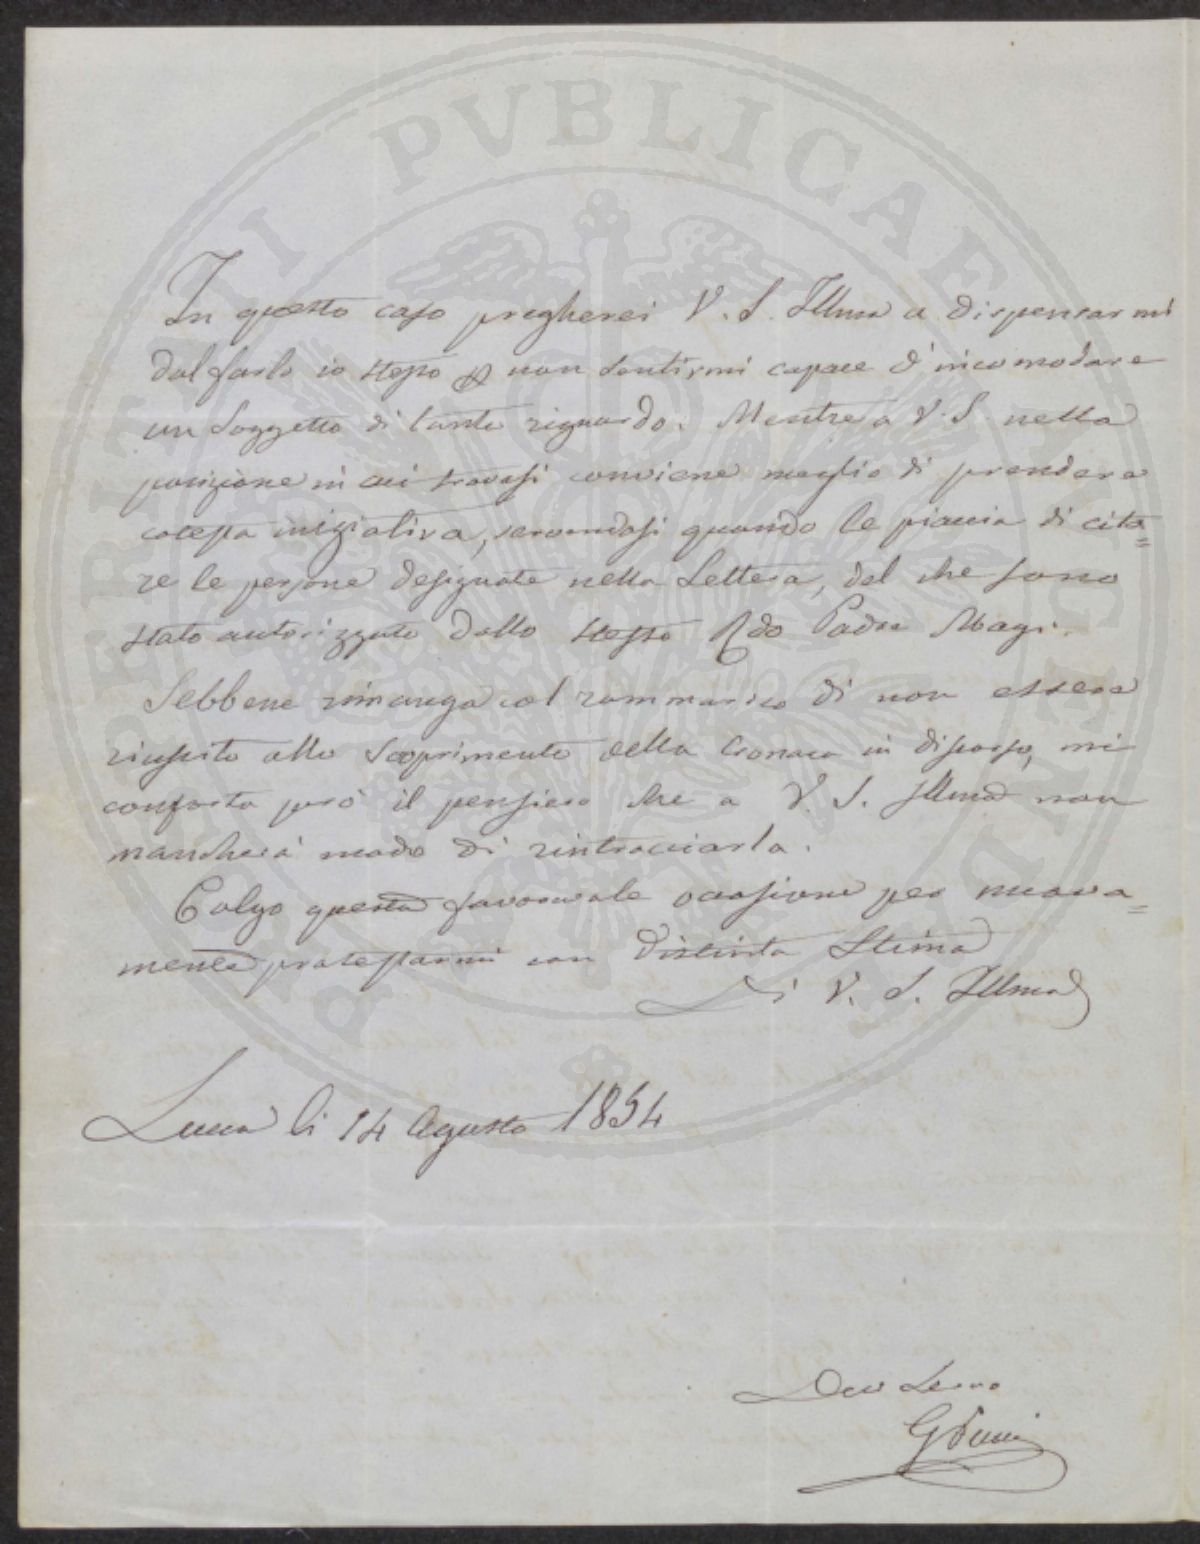 In questo caso pregherei V. S. Illma a dispensarmi
dal farlo io stesso p non sentirmi capace d'incomodare
un Soggetto di tanto riguardo. Mentre a V. S. nella
posizione in cui trovasi conviene meglio di prendere
cotesta iniziativa, servendosi quando le piaccia di cita=
re le persone designate nella Lettera, del che sono
stato autorizzato dallo stesso Rdo Padre Magi.
Sebbene rimanga col rammarico di non essere
riuscito allo scoprimento della Cronaca in discorso, mi
conforta però il pensiero che a V. S. Illma non
mancherà modo di rintracciarla.
Colgo questa favorevole occasione per nuova=
mente protestarmi con distinta Stima
Di V. S. Illma
Lucca li 14 Agosto 1854
Devo Servo
PERITATI PVBLICAE